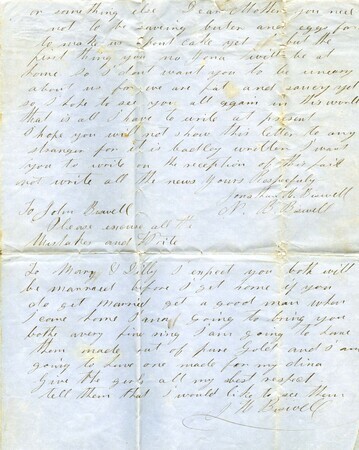 or something else Dear Mother you need
not to be saveing buter and eggs for
to make us spunt cake yet if but the
first thing you no Hona will be at
home so I don't want you to be uneasy
about us for we are fat and saucy yet
so I hope to see you all again in this world
that is all I have to write at present
I hope you will not show this letter to any
stranger for it is badley written I want
you to write on the reception of this and
not write all the news yours respectfuly
Jonathan H. Braswell
To John Braswell
Please excuse all the
Mistakes and Write
To Mary & Dilly I expect you both will
be marraied before I get home if you
do get Married get a good man when
I come home I may going to bring you
bothe a very fine ring I am going to have
them made out of pure Gold and I am
going to have one made for my
Give the girls all my best respect
tell them that I would like to see them
J H Braswell